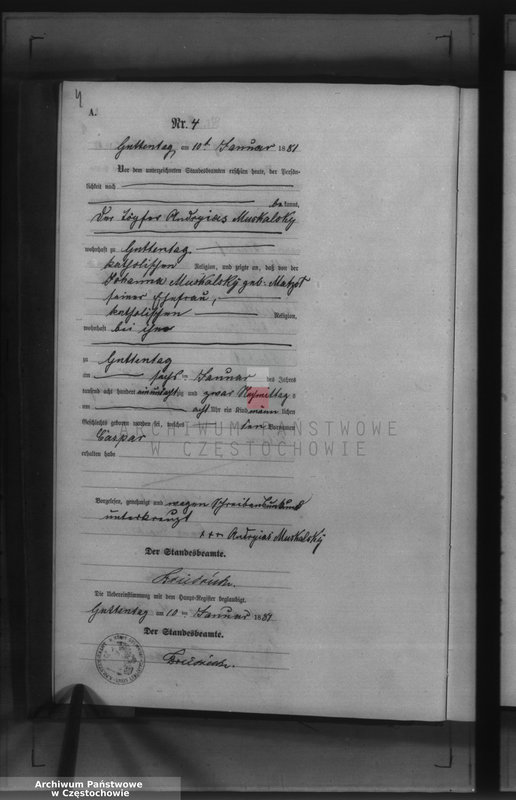 4
A.
Nr. 4
Guttentag, am 10t Januar 1881
Vor dem unterzeichneten Standesbeamten erschien heute, der Persön-
lichkeit nach
be kannt,
Der Töpfer Muskalsky
wohnhaft zu Guttentag
katholischen Religion, und zeigte an, daß von der
Johanna Muskalsky geb. Matzot
seiner Ehefrau,
katholischen Religion,
wohnhaft bei ihm
zu Guttentag
am sechs ten Januar des Jahres
tausend acht hundert einundacht zig und zwar Nachmittag s
um acht Uhr ein Kind männ lichen
Geschlechts geboren worden sei, welches den Vornamen
Caspar
erhalten habe
ARCHIWUM PAŃSTWOWE
W CZĘSTOCHOWIE
Vorgelesen, genehmigt und wegen Schreibensunkunde
unterkreuzt
+++ Muskalsky
Der Standesbeamte.
Die Uebereinstimmung mit dem Haupt-Register beglaubigt.
Guttentag am 10 ten Januar 1881
Der Standesbeamte.
Archiwum Państwowe
w Częstochowie